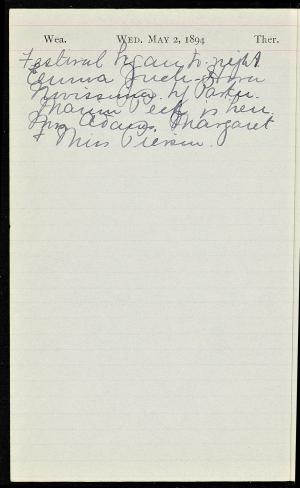 Wea. WED. MAY 2, 1894 Ther.
Festival began to-night
Emma Juch. Hora
Novissima by Parker.
Marion Peck is here
Mrs Adams, Margaret
& Miss Pierson.